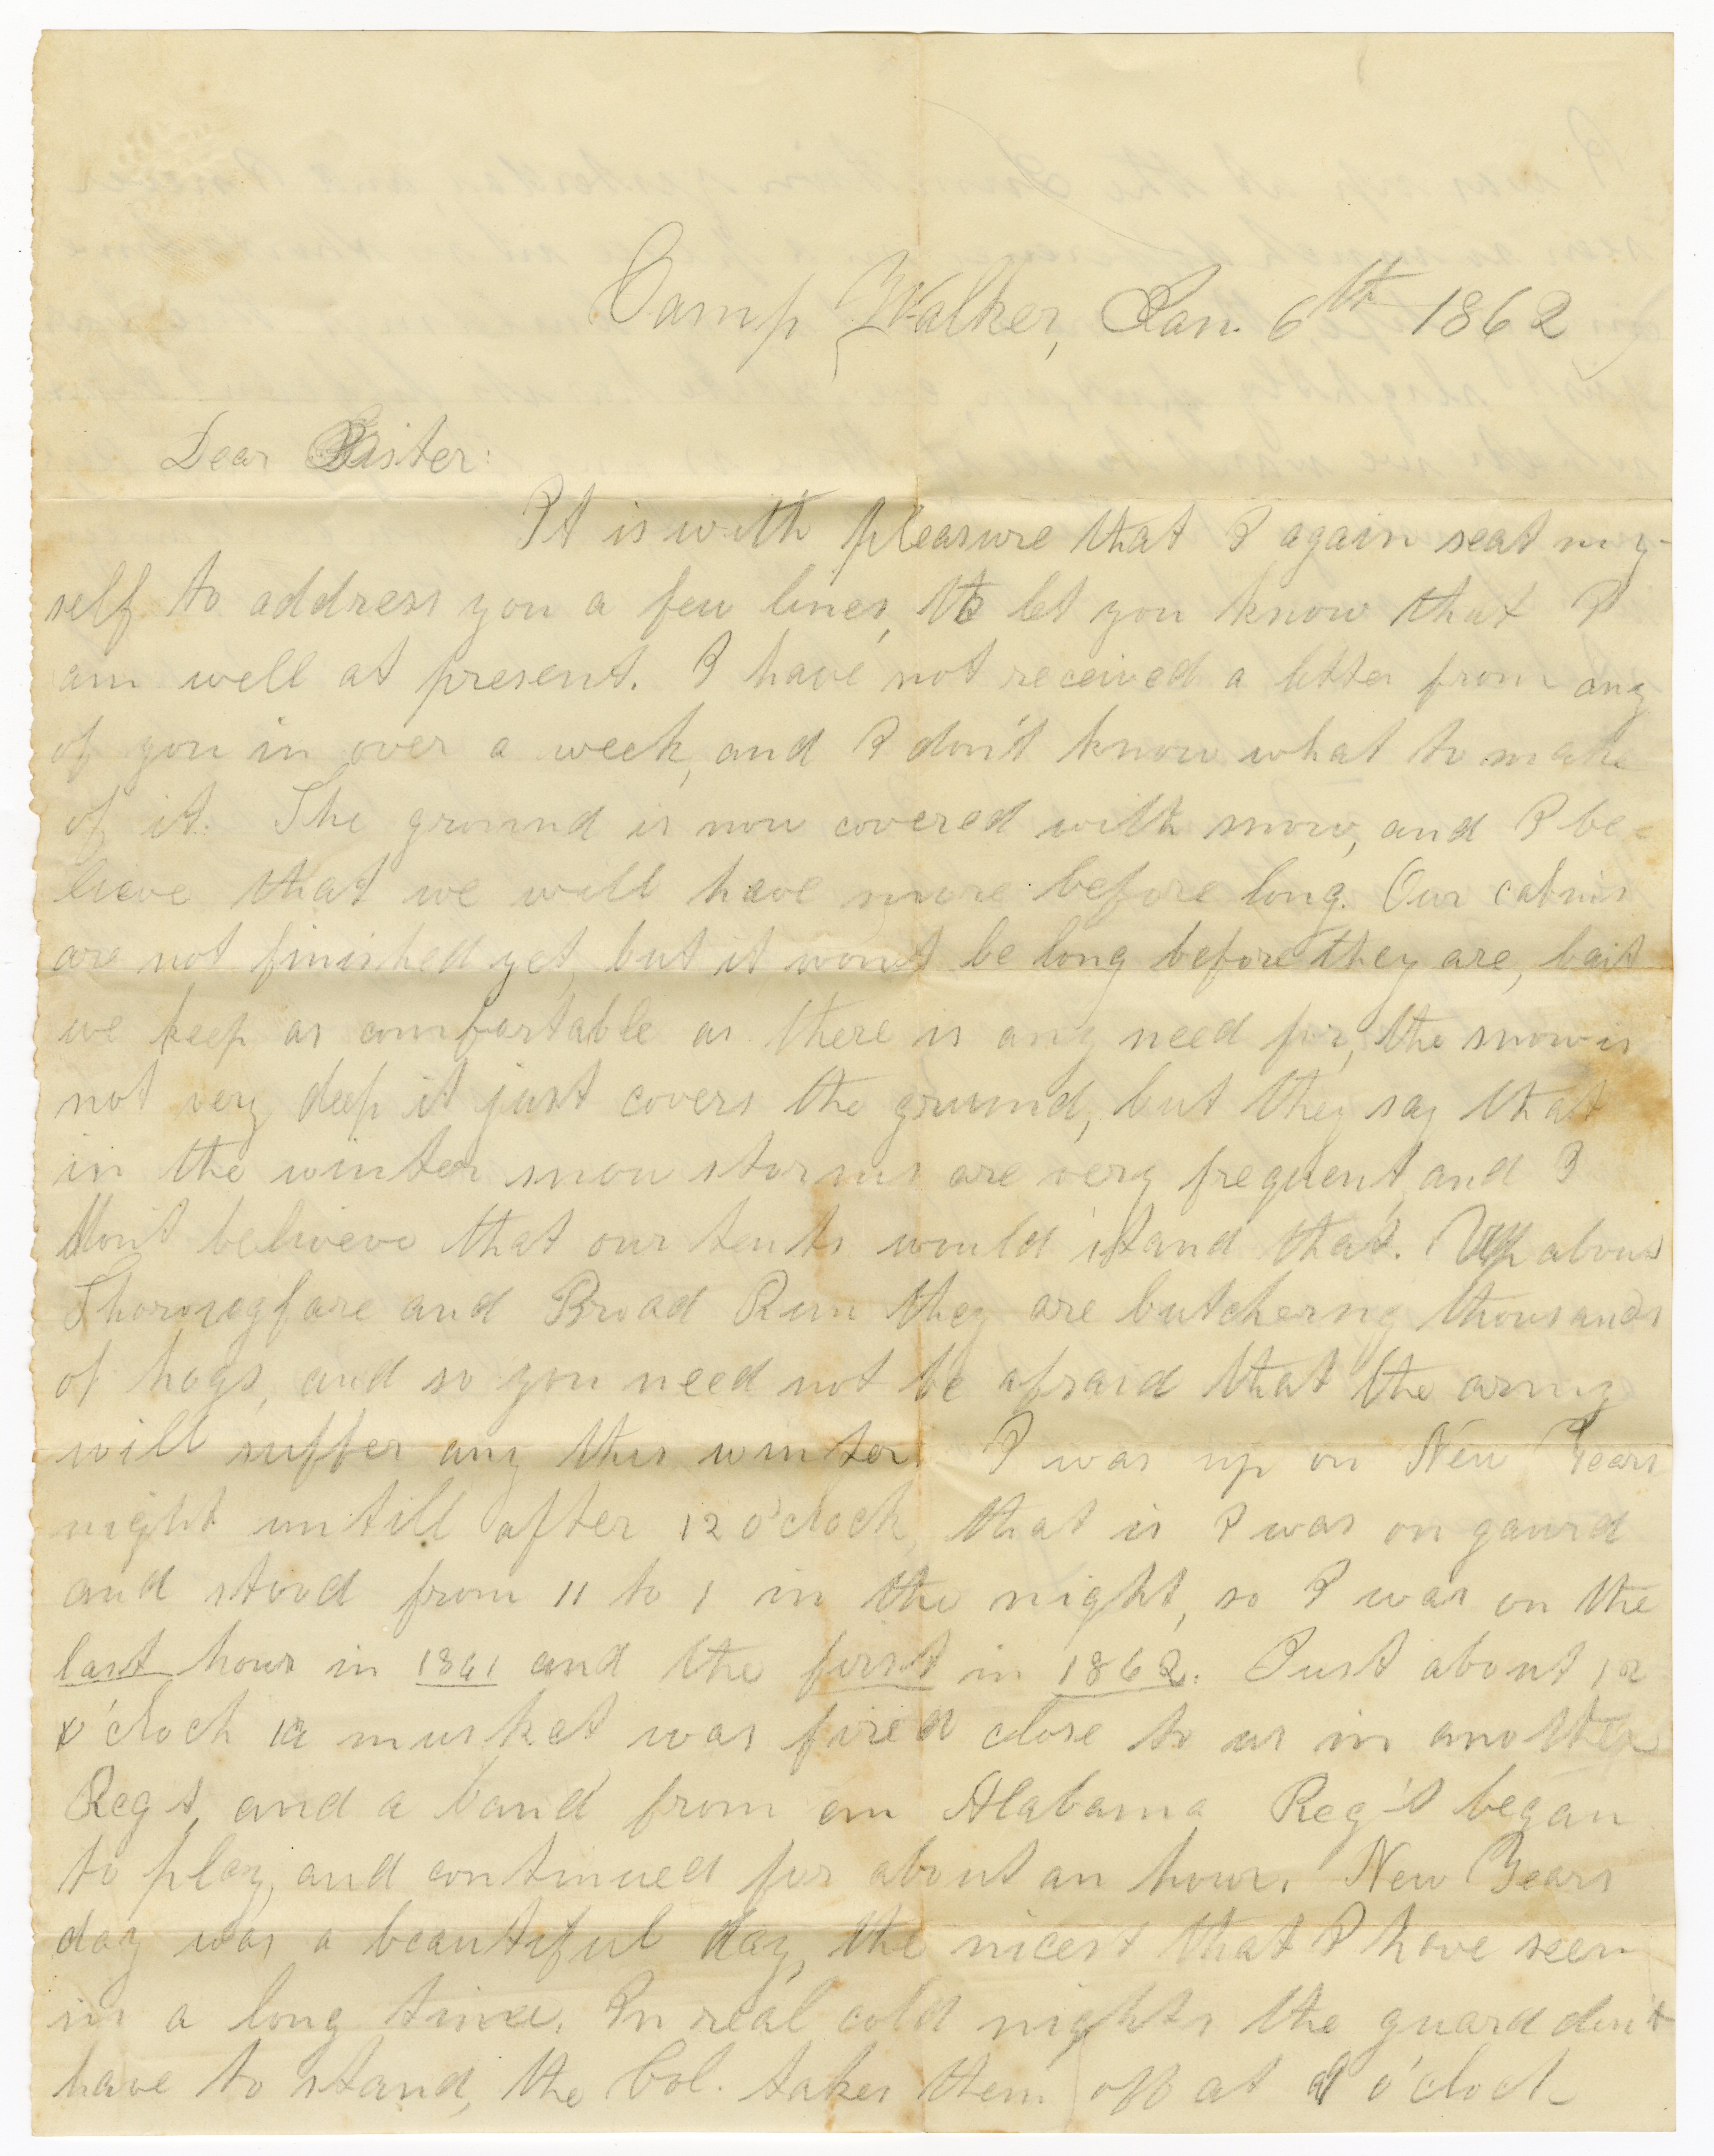 Camp Walker, Jan. 6th 1862
Dear Sister:
It is with pleasure that I again seat my-
self to address you a few lines, to let you know that I
am well at present. I have not received a letter from any
of you in over a week, and I don't know what to make
of it. The ground is now covered with snow, and I be-
lieve that we will have more before long. Our cabins
are not finished yet, but it won't be long before they are, but
we keep as comfortable as there is any need for, the snow is
not very deep it just covers the ground, but they say that
in the winter snow storms are very frequent, and I
don't believeve that our tents would stand that. Up about
Thorougfare and Broad Run they are butchering thousands
of hogs, and so you need not be afraid that the army
will suffer any this winter. I was up on New Years
night untill after 12 o'clock, that is I was on gaurd
and stood from 11 to 1 in the night, so I was on the
last hour in 1861 and the first in 1862. Just about 12
o'clock a musket was fired close to us in another
Regt, and a band from an Alabama Reg't began
to play, and continued for about an hour. New Years
day was a beautiful day, the nicest that I have seen
in a long time. In real cold nights the guard don't
have to stand, the Col. takes them off at o'clock